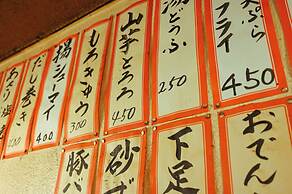 天ぷら
フライ
450
湯どうふ
250
山芋とろろ
450
もろきゅう
300
揚シューマイ
400
だし巻き
あさり
おでん
下足
砂ず
豚バ